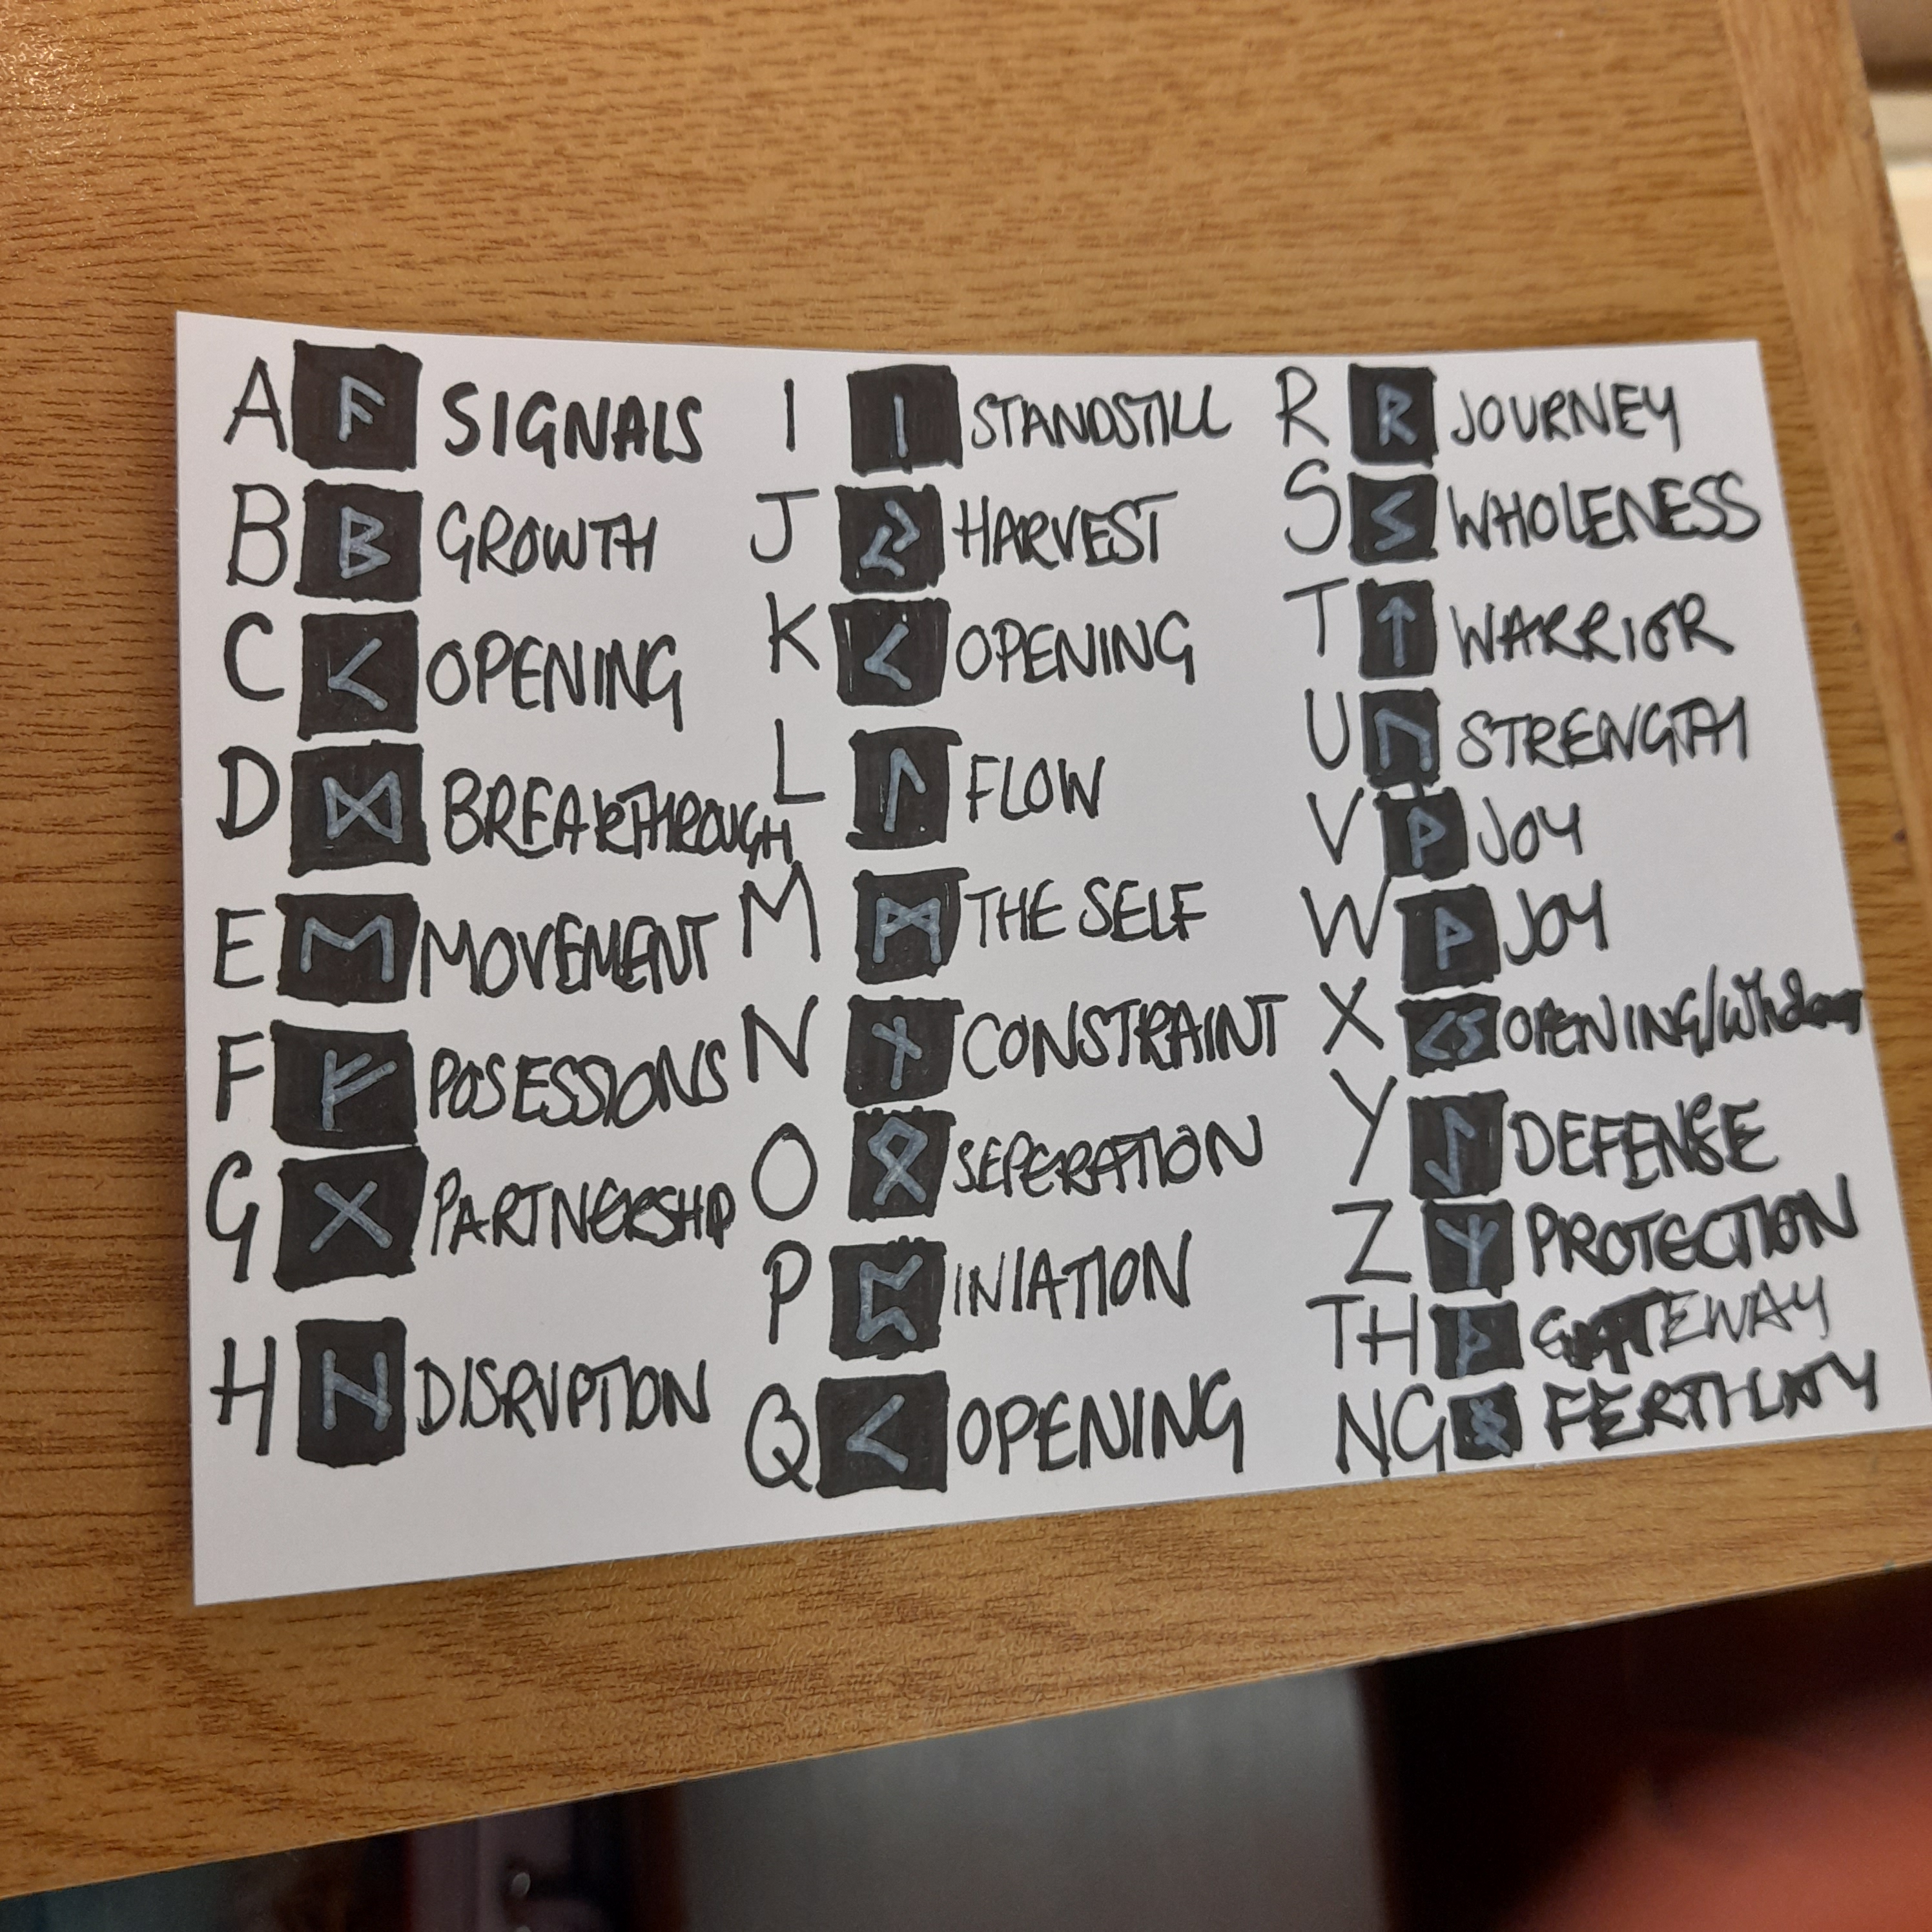 A ᚨ SIGNALS
B ᛒ GROWTH
C ᚲ OPENING
D ᛞ BREAKTHROUGH
E ᛖ MOVEMENT
F ᚠ POSESSIONS
G ᚷ PARTNERSHIP
H ᚺ DISRUPTION
I ᛁ STANDSTILL
J ᛃ HARVEST
K ᚲ OPENING
L ᛚ FLOW
M ᛗ THE SELF
N ᚾ CONSTRAINT
O ᛟ SEPERATION
P ᛈ INIATION
Q ᚲ OPENING
R ᚱ JOURNEY
S ᛊ WHOLENESS
T ᛏ WARRIOR
U ᚢ STRENGTH
V ᚹ JOY
W ᚹ JOY
X ᚲᛊ OPENING/
Y ᛇ DEFENSE
Z ᛉ PROTECTION
TH ᚦ GATEWAY
NG ᛝ